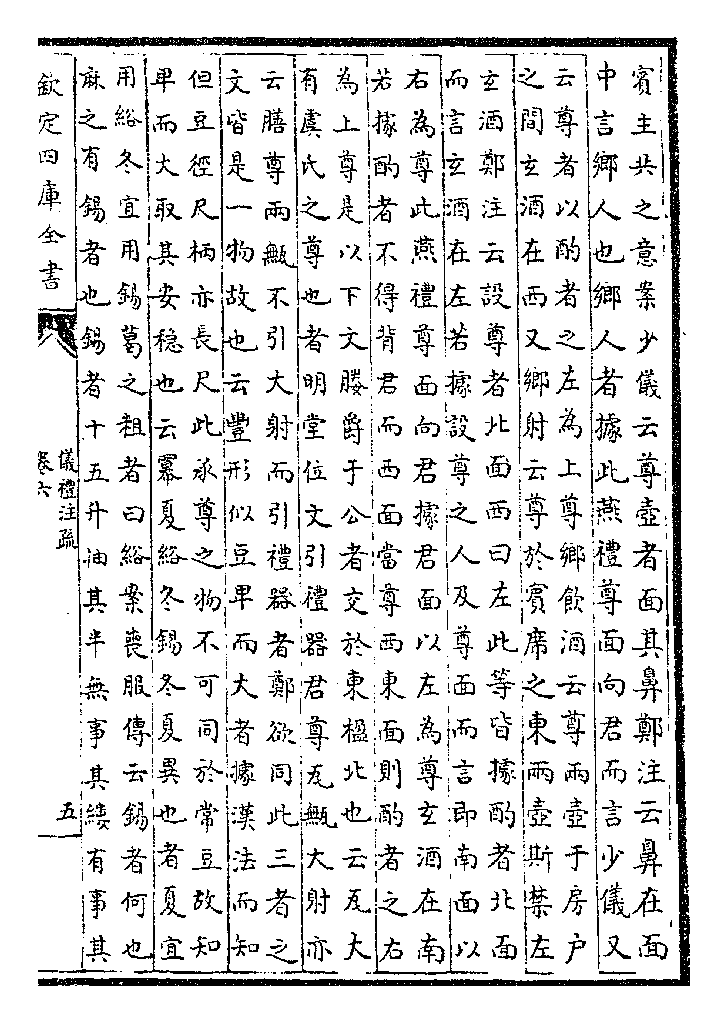 賓主共之意案少儀云尊壺者面其鼻鄭注云鼻在面
中言鄉人也鄉人者據此燕禮尊面向君而言少儀又
云尊者以酌者之左為上尊鄉飲酒云尊兩壺于房户
之間玄酒在西又鄉射云尊於賓席之東兩壺斯禁左
玄酒鄭注云設尊者北面西曰左此等皆據酌者北面
而言玄酒在左若據設尊之人及尊面而言即南面以
右為尊此燕禮尊面向君據君面以左為尊玄酒在南
若據酌者不得背君而西面當尊西東面則酌者之右
為上尊是以下文媵爵于公者交於東楹北也云瓦大
有虞氏之尊也者明堂位文引禮器君尊瓦甒大射亦
云膳尊兩甒不引大射而引禮器者鄭欲同此三者之
文皆是一物故也云豐形似豆卑而大者據漢法而知
但豆徑尺柄亦長尺此承尊之物不可同於常豆故知
卑而大取其安穩也云冪夏綌冬錫冬夏異也者夏宜
用綌冬宜用錫葛之粗者曰綌案喪服傳云錫者何也
麻之有錫者也錫者十五升抽其半無事其縷有事其
欽定四庫全書
儀禮注疏
卷六
五